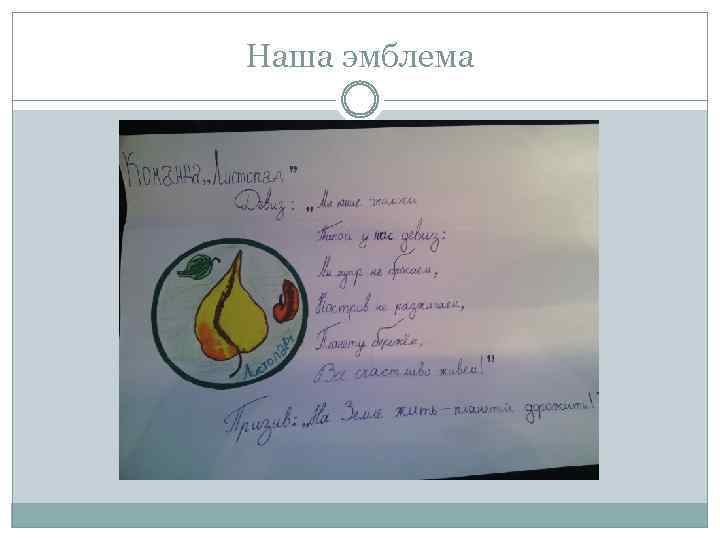 Наша эмблема
Команда „Листопад"
Девиз: „Мы юные
Такой у нас девиз:
Мы не бросаем,
Костров не разжигаем,
Планету бережём,
Все счастливо живём!"
Листопад
Призыв: „На Земле жить – планетой дорожить!"